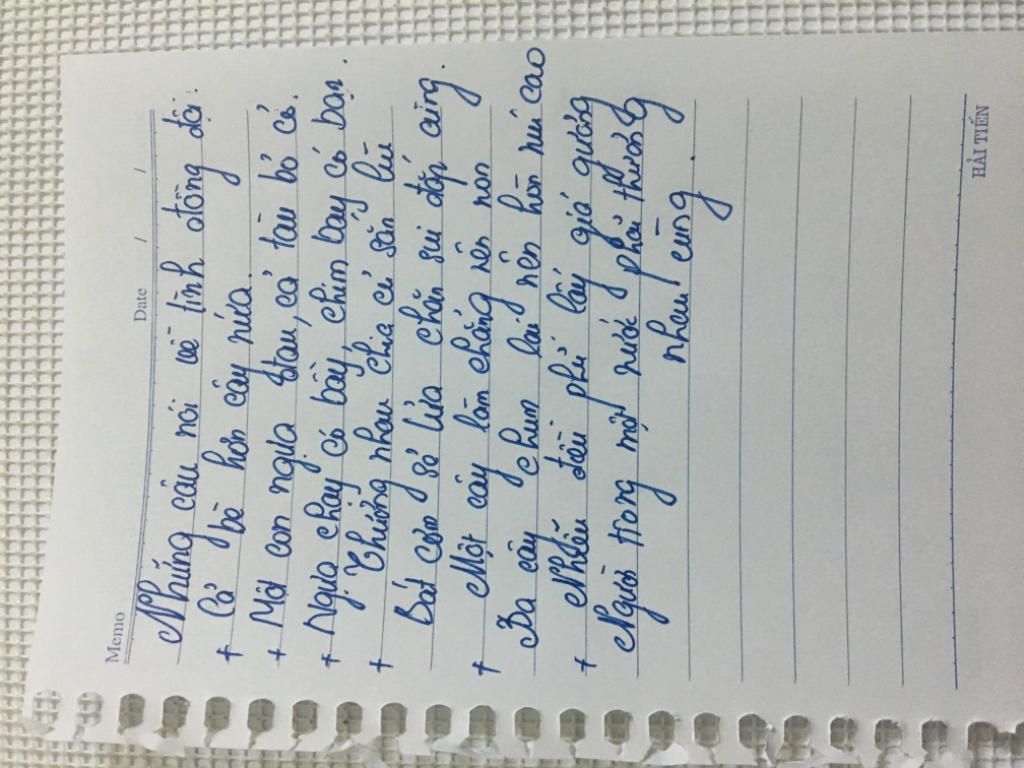 Memo
Date / /
Những câu nói về tình đồng đội.
+ Cả bè hơn cây nứa.
+ Một con ngựa đau, cả tàu bỏ cỏ.
+ Ngựa chạy có bầy, chim bay có bạn.
+ Thương nhau chia củ sắn lùi
Bát cơm sẻ nửa chăn sui đắp cùng.
+ Một cây làm chẳng nên non
Ba cây chụm lại nên hòn núi cao
+ Nhiễu điều phủ lấy giá gương
Người trong một nước phải thương
nhau cùng.
HẢI TIẾN